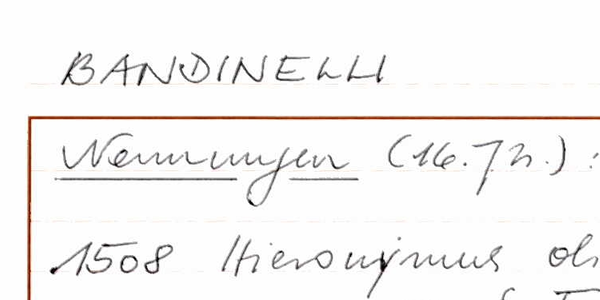 BANDINELLI
Nennungen (16. Jh.) :
1508 Hieronymus